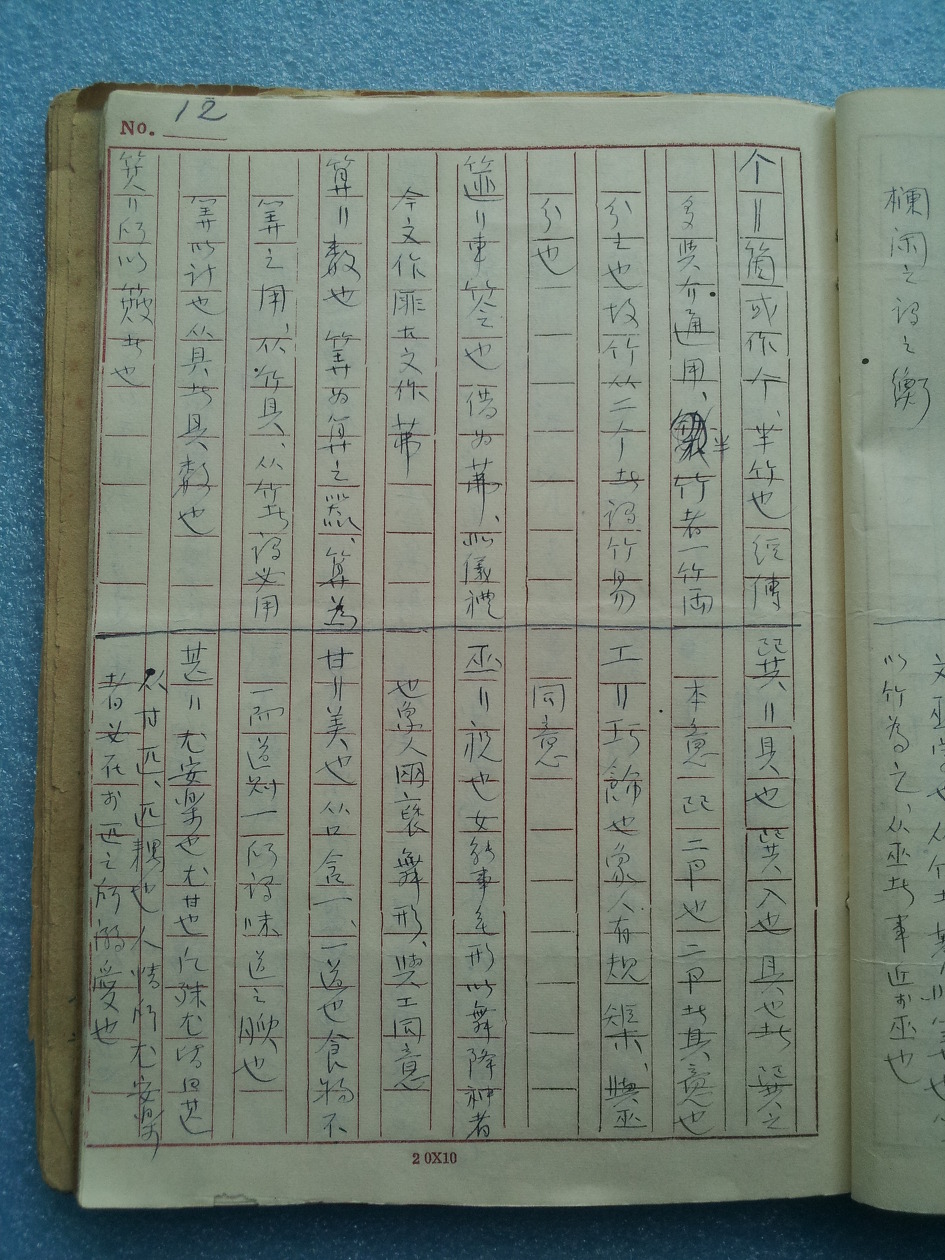 No. 12
个〃箇或作个、半竹也經傳
多與介通用、半竹者一竹兩
分之也故竹从二个者謂竹易
分也
篚〃車笭也借為茀、儀禮
今文作匪古文作茀
算〃數也 筭為算之器、算為
筭之用、从竹具、从竹者謂必用
筭以計也从具者具數也
箕〃所以簸者也
巽〃具也巽入也具也者巽之
本意 㔾二卪也二卪者具意也
工〃巧飾也象人有規矩、與巫
同意
巫〃祝也女能事無形以舞降神者
也象人兩褎舞形、與工同意
甘〃美也从口含一、一道也食物不
一而道則一所謂味道之腴也
甚〃尤安樂也尤甘也凡殊尤皆曰甚
从甘匹、匹耦也人情所尤安樂
者必在於匹之所溺愛也
20X10
以竹為之、从巫者事近於巫也